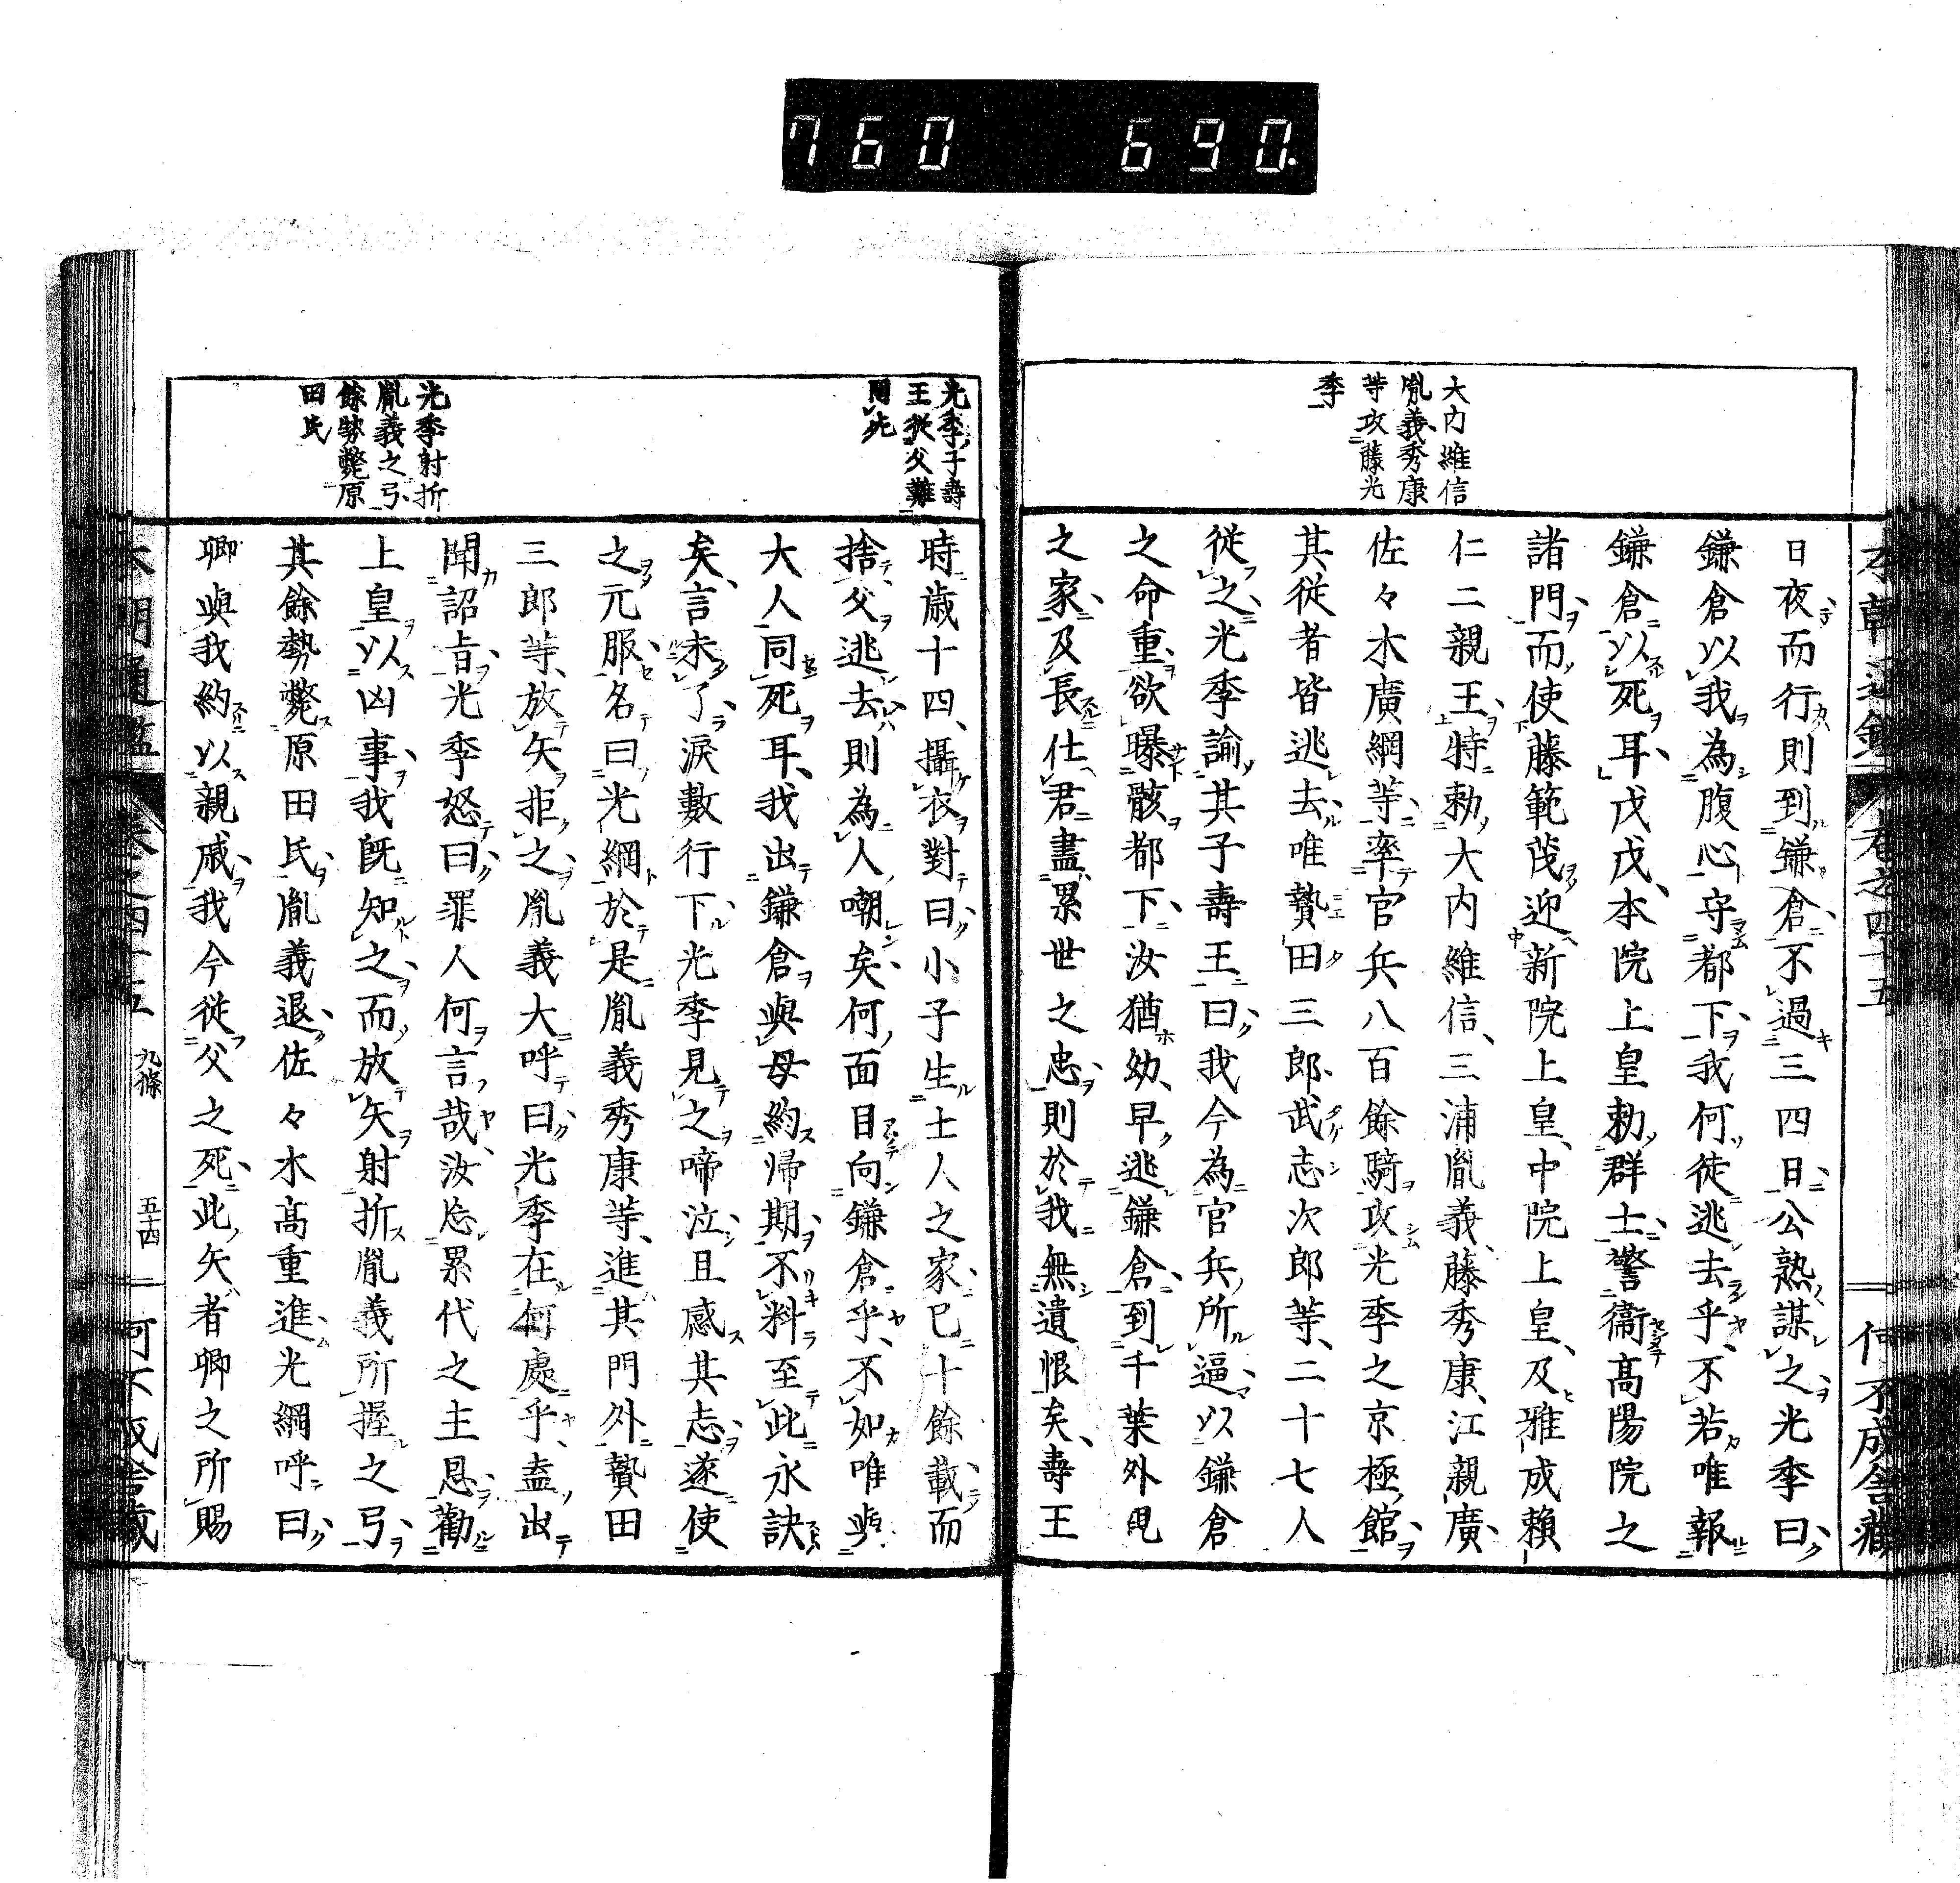 760 690.
本朝通鑑 卷之四十五 何不成舎藏
大内維信
胤義秀康
等攻藤光
季
日夜而行則到鎌倉不過三四日公熟謀之光季曰
鎌倉以我為腹心守都下我何徒逃去乎不若唯報
鎌倉以死耳戊戌本院上皇勅群士警衞髙陽院之
諸門而使藤範茂迎新院上皇中院上皇及雅成賴
仁二親王特勅大内維信三浦胤義藤秀康江親廣
佐々木廣綱等率官兵八百餘騎攻光季之京極館
其従者皆逃去唯贄田三郎武志次郎等二十七人
従之光季諭其子壽王曰我今為官兵所逼以鎌倉
之命重欲曝骸都下汝猶幼早逃鎌倉到千葉外
之家及長仕君盡累世之忠則於我無遺恨矣壽王
光季子壽
王従父難
同死
時歳十四攝衣對曰小子生士人之家已十餘載而
捨父逃去則為人嘲矣何面目向鎌倉乎不如唯與
大人同死耳我出鎌倉與母約帰期不料至此永訣
矣言未了涙數行下光季見之啼泣且感其志遂使
之元服名曰光綱於是胤義秀康等進其門外贄田
三郎等放矢拒之胤義大呼曰光季在何處乎盍出
聞詔旨光季怒曰罪人何言哉汝忘累代之主恩勸
上皇以凶事我既知之而放矢射折胤義所握之弓
其餘勢斃原田氏胤義退佐々木髙重進光綱呼曰
卿與我約以親戚我今従父之死此矢者卿之所賜
光季射折
胤義之弓
餘勢斃原
田氏
本朝通鑑 卷之四十五 九條 五十四 何不成舎藏